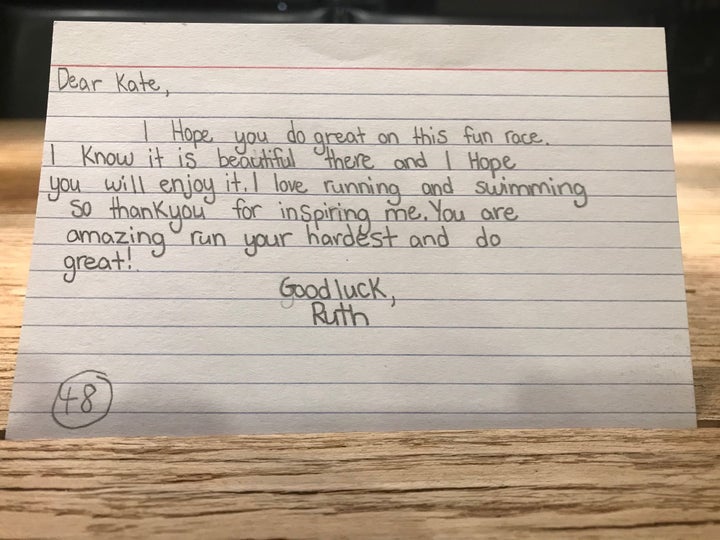 Dear Kate,
I Hope you do great on this fun race.
I Know it is beautiful there and I Hope
you will enjoy it. I love running and swimming
so thankyou for inspiring me. You are
amazing run your hardest and do
great!
Good luck,
Ruth
48